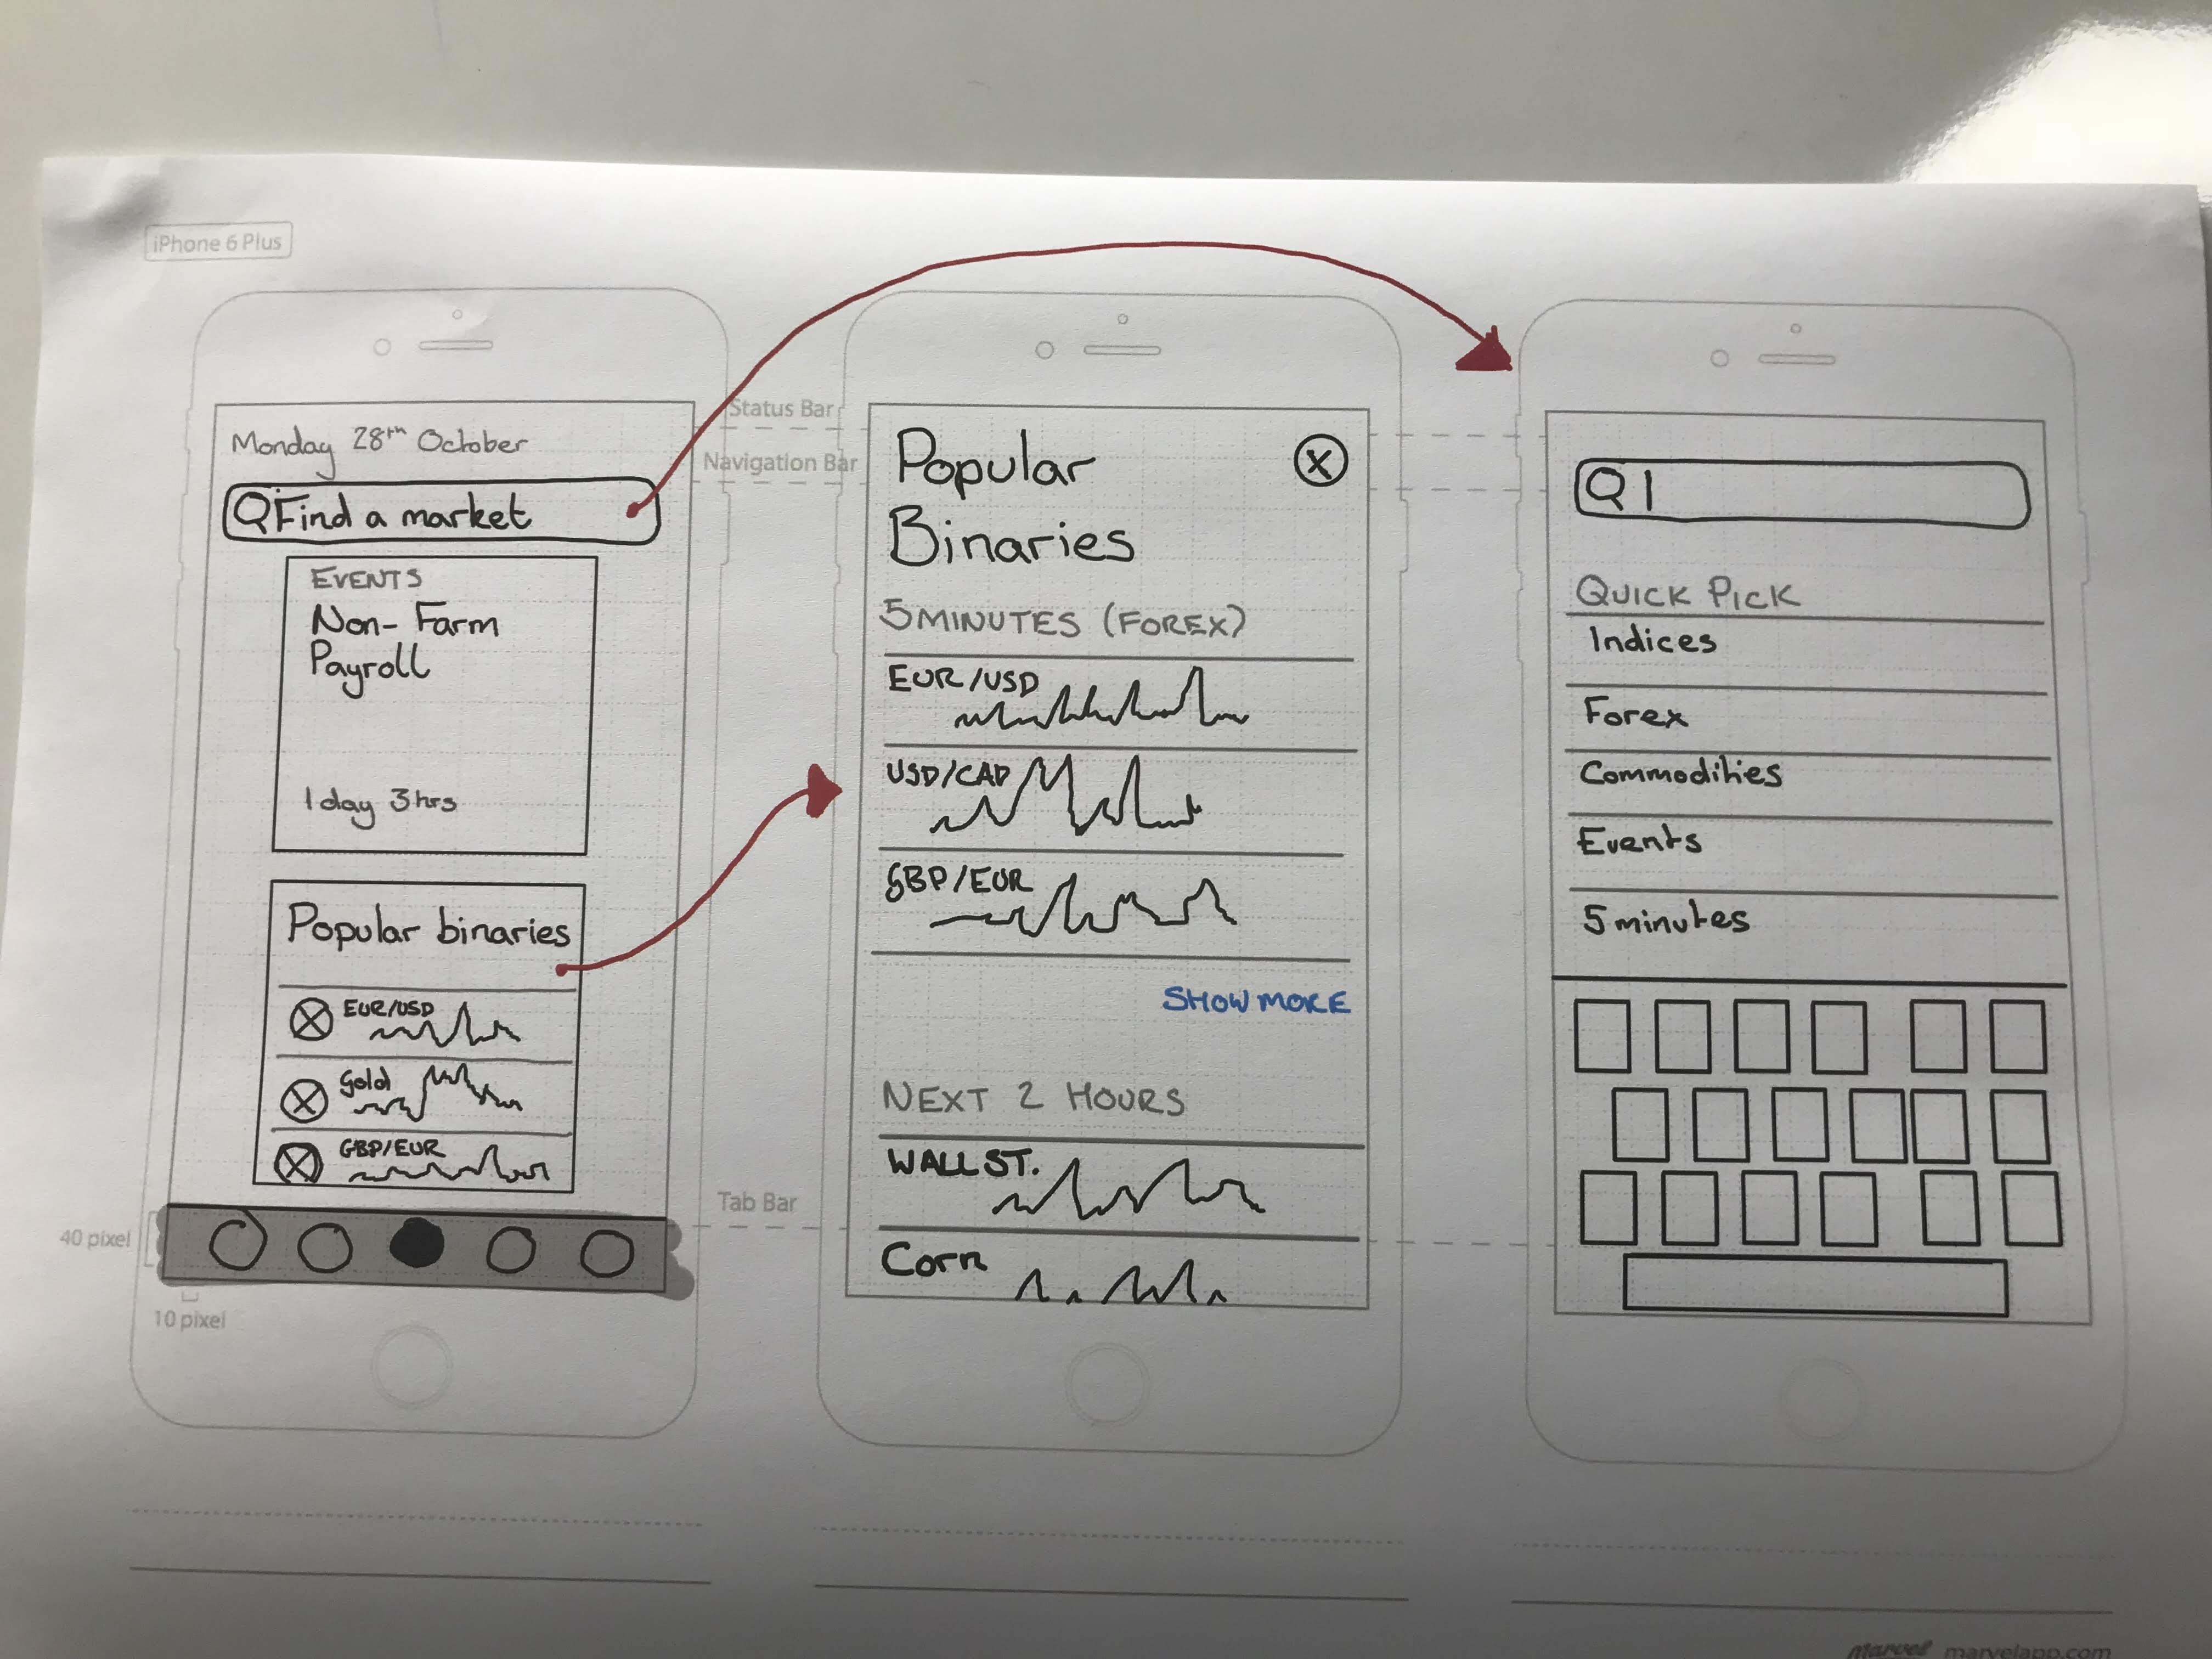 iPhone 6 Plus
Monday 28th October
Find a market
EVENTS
Non-Farm
Payroll
1 day 3hrs
Popular binaries
EUR/USD
Gold
GBP/EUR
40 pixel
10 pixel
Status Bar
Navigation Bar
Tab Bar
Popular
Binaries
X
5 MINUTES (FOREX)
EUR/USD
USD/CAD
GBP/EUR
SHOW MORE
NEXT 2 HOURS
WALL ST.
Corn
QUICK PICK
Indices
Forex
Commodities
Events
5 minutes
Marvel marvelapp.com